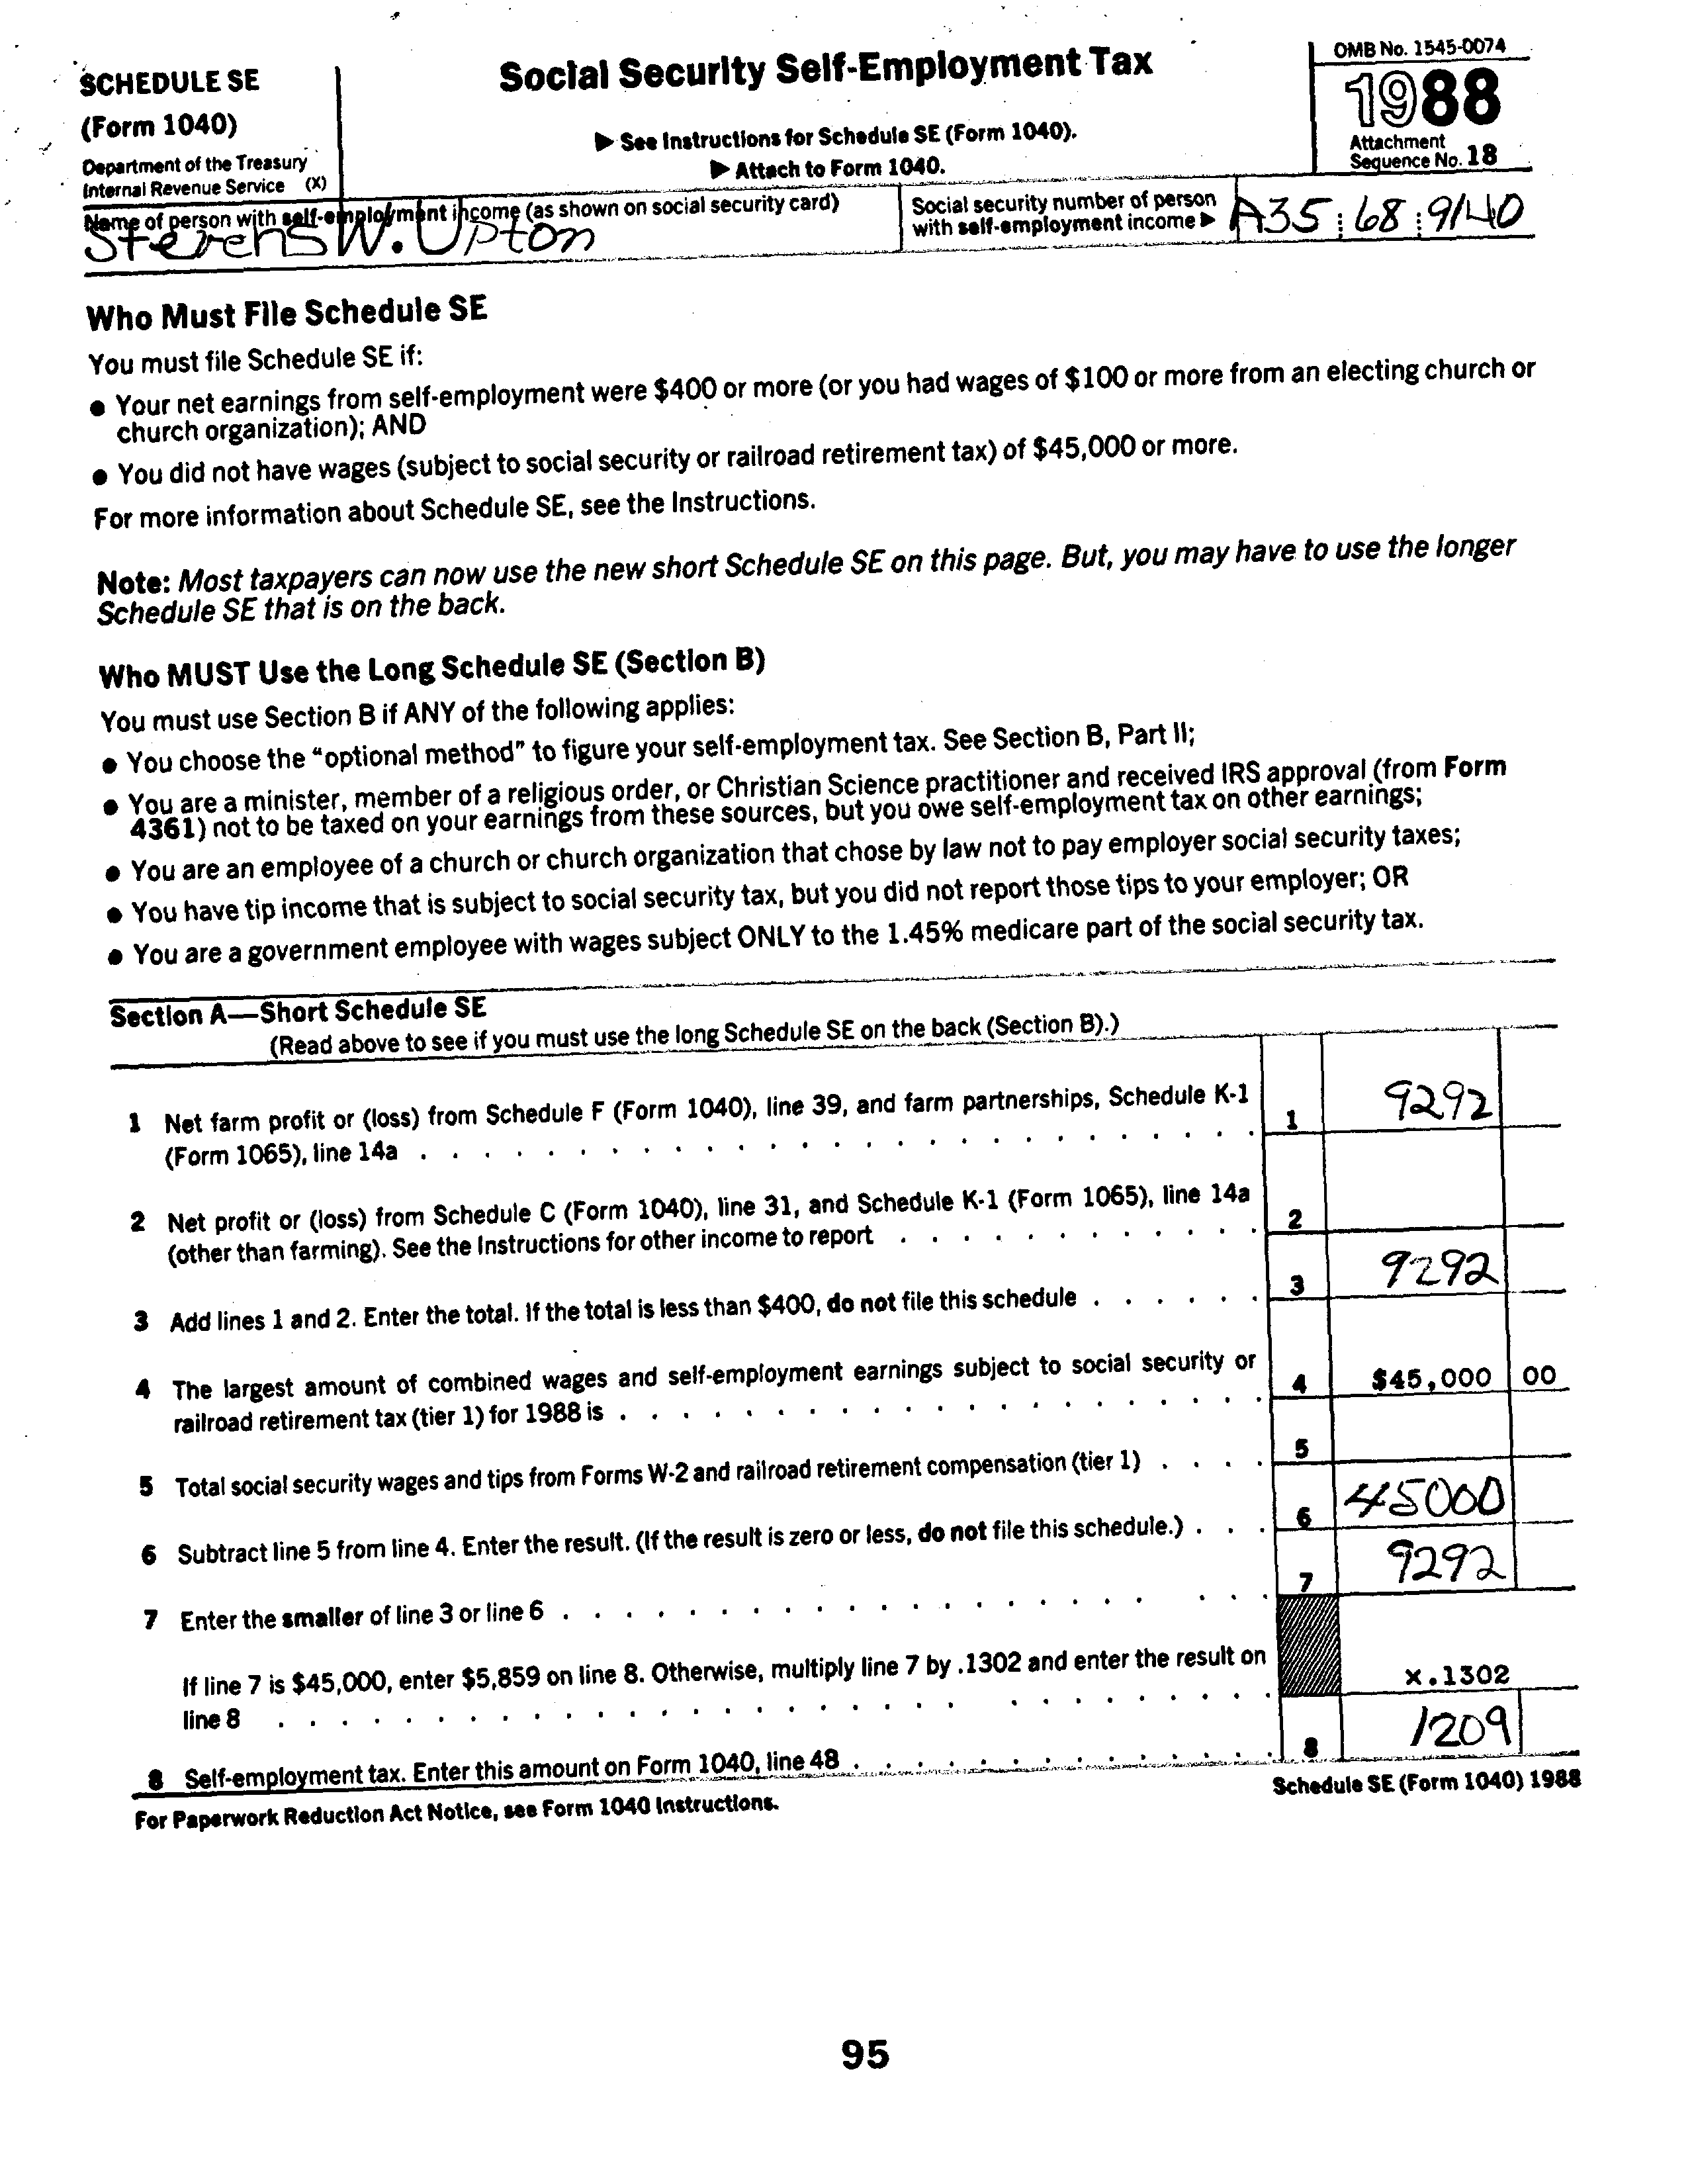 SCHEDULE SE
(Form 1040)
Department of the Treasury
Internal Revenue Service (X)
Social Security Self-Employment Tax
▶ See Instructions for Schedule SE (Form 1040).
▶ Attach to Form 1040.
OMB No. 1545-0074
1988
Attachment
Sequence No. 18
Name of person with self-employment income (as shown on social security card)
Stevens W. Upton
Social security number of person
with self-employment income ▶
A35:68:9140
Who Must File Schedule SE
You must file Schedule SE if:
● Your net earnings from self-employment were $400 or more (or you had wages of $100 or more from an electing church or
church organization); AND
● You did not have wages (subject to social security or railroad retirement tax) of $45,000 or more.
For more information about Schedule SE, see the Instructions.
Note: Most taxpayers can now use the new short Schedule SE on this page. But, you may have to use the longer
Schedule SE that is on the back.
Who MUST Use the Long Schedule SE (Section B)
You must use Section B if ANY of the following applies:
● You choose the "optional method" to figure your self-employment tax. See Section B, Part II;
● You are a minister, member of a religious order, or Christian Science practitioner and received IRS approval (from Form
4361) not to be taxed on your earnings from these sources, but you owe self-employment tax on other earnings;
● You are an employee of a church or church organization that chose by law not to pay employer social security taxes;
● You have tip income that is subject to social security tax, but you did not report those tips to your employer; OR
● You are a government employee with wages subject ONLY to the 1.45% medicare part of the social security tax.
Section A—Short Schedule SE
(Read above to see if you must use the long Schedule SE on the back (Section B).)
1 Net farm profit or (loss) from Schedule F (Form 1040), line 39, and farm partnerships, Schedule K-1
(Form 1065), line 14a . . . 1 9292
2 Net profit or (loss) from Schedule C (Form 1040), line 31, and Schedule K-1 (Form 1065), line 14a
(other than farming). See the Instructions for other income to report . . . 2
3 Add lines 1 and 2. Enter the total. If the total is less than $400, do not file this schedule . . . 3 9292
4 The largest amount of combined wages and self-employment earnings subject to social security or
railroad retirement tax (tier 1) for 1988 is . . . 4 $45,000 00
5 Total social security wages and tips from Forms W-2 and railroad retirement compensation (tier 1) . . . 5
6 Subtract line 5 from line 4. Enter the result. (If the result is zero or less, do not file this schedule.) . . . 6 45000
7 Enter the smaller of line 3 or line 6 . . . 7 9292
If line 7 is $45,000, enter $5,859 on line 8. Otherwise, multiply line 7 by .1302 and enter the result on
line 8 . . . x.1302
8 Self-employment tax. Enter this amount on Form 1040, line 48 . . . 8 1209
For Paperwork Reduction Act Notice, see Form 1040 Instructions.
Schedule SE (Form 1040) 1988
95